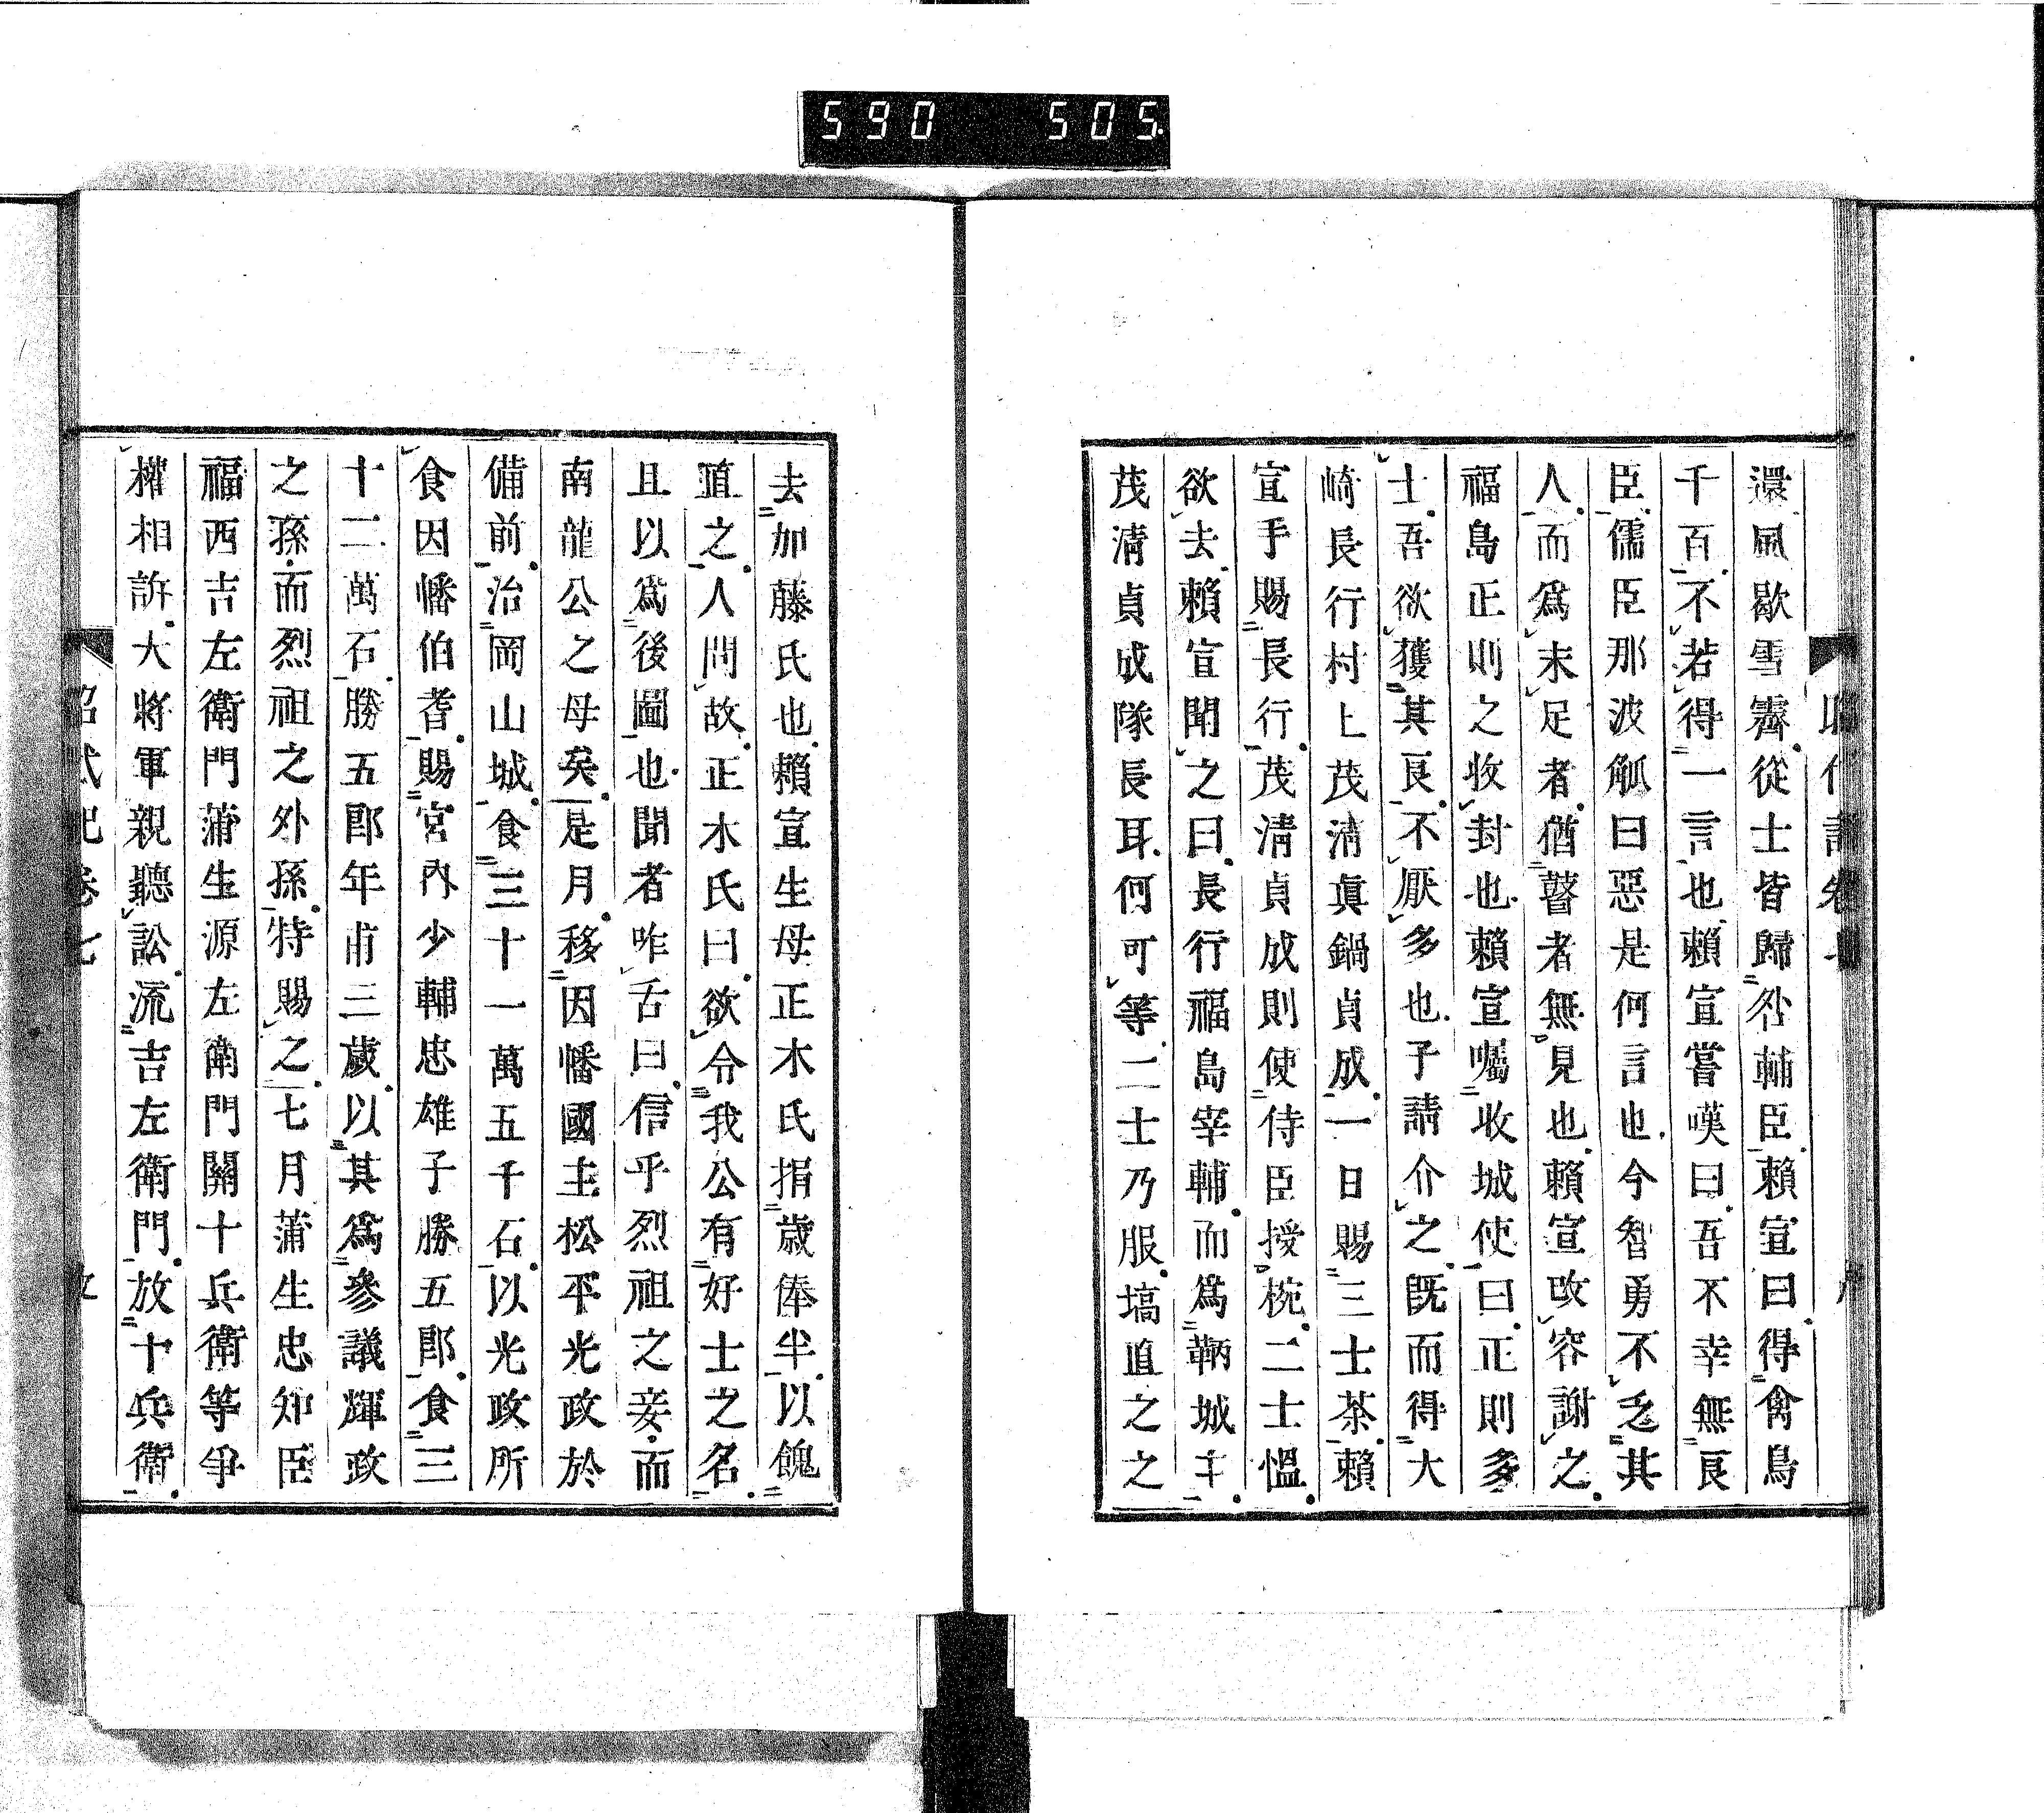 590 505.
還風歇雪霽從士皆歸咎輔臣賴宣曰得禽鳥
千百不若得一言也賴宣嘗嘆曰吾不幸無良
臣儒臣那波觚曰惡是何言也今智勇不乏其
人而爲未足者猶瞽者無見也賴宣改容謝之
福島正則之收封也賴宣囑收城使曰正則多
士吾欲獲其良不厭多也予請介之既而得大
崎長行村上茂清眞鍋貞成一日賜三士茶賴
宣手賜長行茂清貞成則使侍臣授椀二士慍
欲去賴宣聞之曰長行福島宰輔而爲鞆城主
茂清貞成隊長耳何可等二士乃服塙直之之
去加藤氏也賴宣生母正木氏捐歲俸半以餽
直之人問故正木氏曰欲令我公有好士之名
且以爲後圖也聞者咋舌曰信乎烈祖之妾而
南龍公之母矣是月移因幡國主松平光政於
備前治岡山城食三十一萬五千石以光政所
食因幡伯耆賜宮內少輔忠雄子勝五郎食三
十二萬石勝五郎年甫三歲以其爲參議輝政
之孫而烈祖之外孫特賜之七月蒲生忠知臣
福西吉左衛門蒲生源左衛門關十兵衛等爭
權相訴大將軍親聽訟流吉左衛門放十兵衛
昭武記卷七